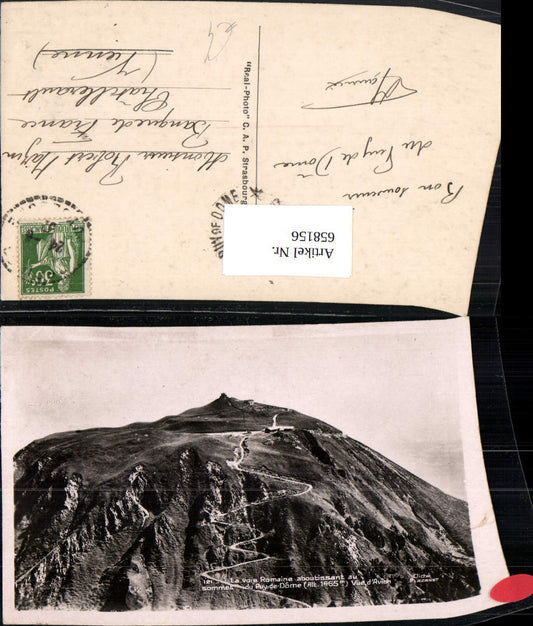 Bon souvenir
du Puy de Dôme
Monsieur Robert
Banque de France
Châtellerault
(Vienne)
"Real-Photo" C. A. P. Strasbourg
PUY DE DOME
Artikel Nr.
658156
30c
POSTES
121 La Voie Romaine aboutissant au
sommet du Puy-de-Dôme (Alt. 1465m) Vue d'Avion
Cliché